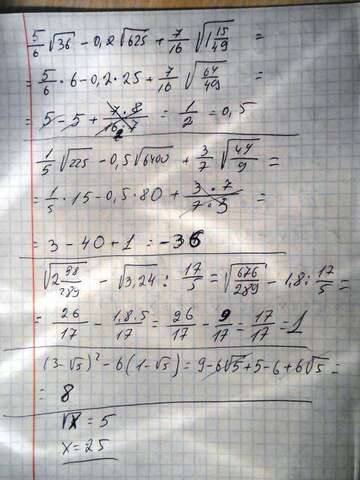 5/6 √36 − 0,2√625 + 7/16 √(1 15/49) =
= 5/6 · 6 − 0,2 · 25 + 7/16 √(64/49) =
= 5 − 5 + (7 · 8)/(16 · 7) = 1/2 = 0,5
1/5 √225 − 0,5√6400 + 3/7 √(49/9) =
= 1/5 · 15 − 0,5 · 80 + (3 · 7)/(7 · 3) =
= 3 − 40 + 1 = −36
√(2 98/289) − √3,24 : 17/5 = √(676/289) − 1,8 : 17/5 =
= 26/17 − 1,8·5/17 = 26/17 − 9/17 = 17/17 = 1
(3−√5)² − 6(1−√5) = 9 − 6√5 + 5 − 6 + 6√5 =
= 8
√x = 5
x = 25